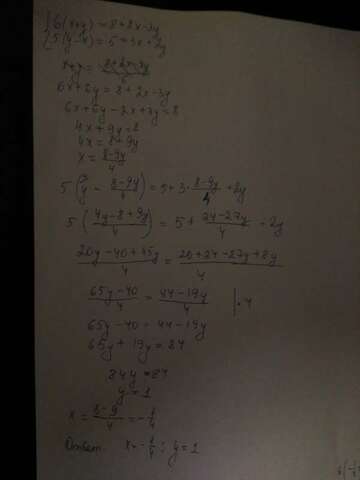 {6(x+y)=8+2x-3y
{5(y-x)=5+3x+2y
x+y=
6x+6y=8+2x-3y
6x+6y-2x+3y=8
4x+9y=8
4x=8-9y
x=\frac{8-9y}{4}
5(y-\frac{8-9y}{4})=5+3·\frac{8-9y}{4}+2y
5(\frac{4y-8+9y}{4})=5+\frac{24-27y}{4}+2y
\frac{20y-40+45y}{4}=\frac{20+24-27y+8y}{4}
\frac{65y-40}{4}=\frac{44-19y}{4} |·4
65y-40=44-19y
65y+19y=84
84y=84
y=1
x=\frac{8-9}{4}=-\frac{1}{4}
Ответ. x=-\frac{1}{4}; y=1